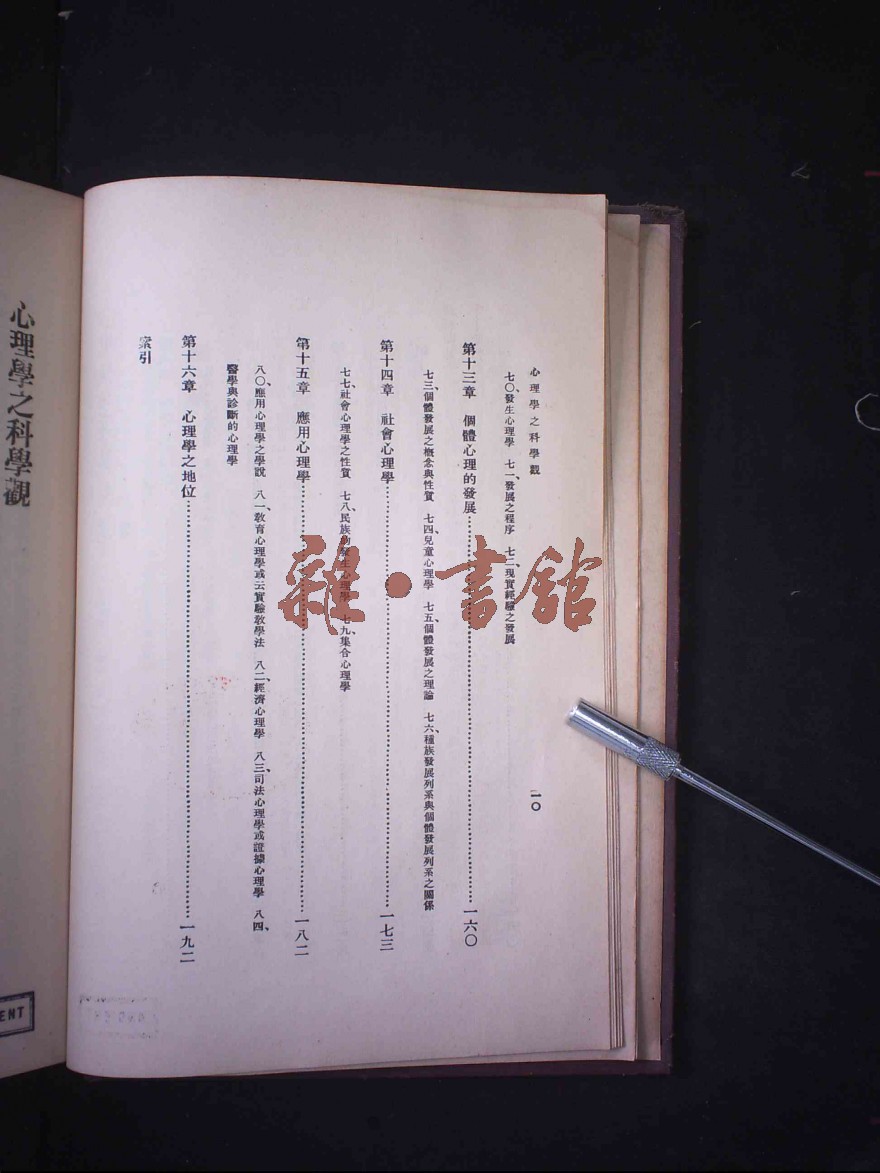 心理學之科學觀
一〇
七〇、發生心理學 七一、發展之程序 七二、現實經驗之發展
第十三章 個體心理的發展……一六〇
七三、個體發展之概念與性質 七四、兒童心理學 七五、個體發展之理論 七六、種族發展列系與個體發展列系之關係
第十四章 社會心理學……一七三
七七、社會心理學之性質 七八、民族的發生心理學 七九、集合心理學
第十五章 應用心理學……一八二
八〇、應用心理學之學說 八一、教育心理學或云實驗教學法 八二、經濟心理學 八三、司法心理學或證據心理學 八四、
醫學與診斷的心理學
第十六章 心理學之地位……一九二
索引
心理學之科學觀
ENT
雜·書館